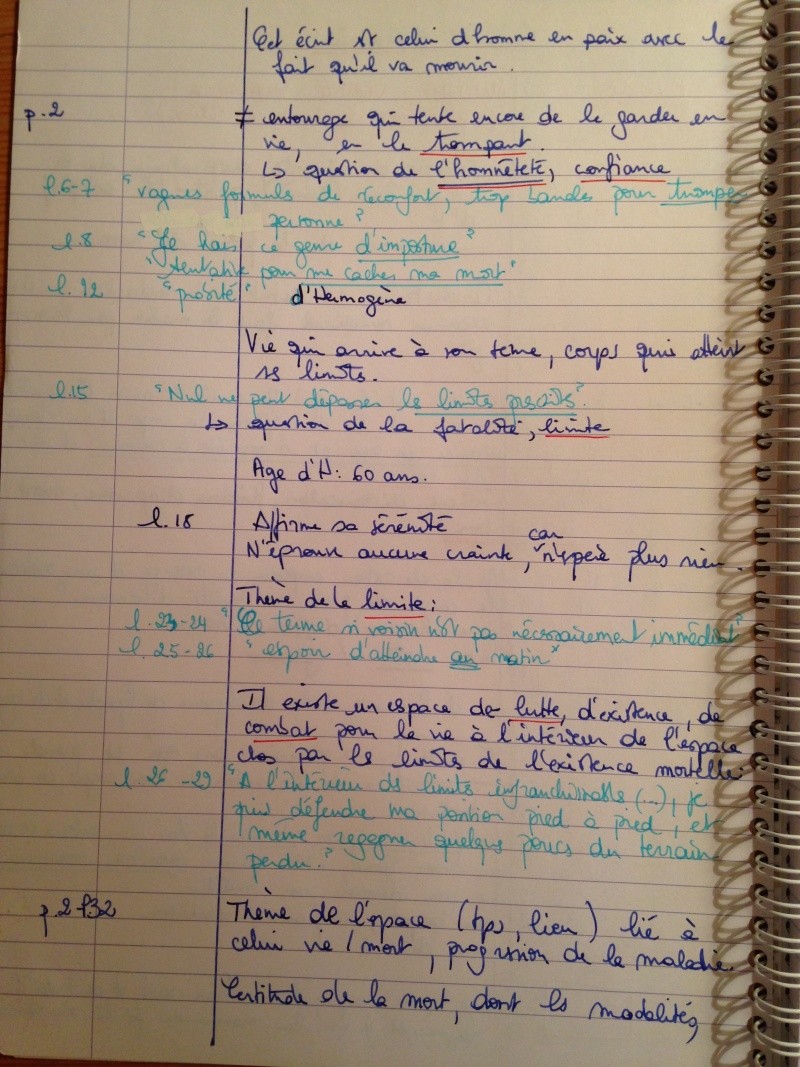 Cet écrit st celui d'homme en paix avec le
fait qu'il va mourir.
p.2 ≠ entourage qui tente encore de le garder en
vie, en le trompant.
↳ question de l'honnêteté, confiance
l.6-7 "vagues formules de réconfort, trop banales pour tromper
personne"
l.8 "Je hais ce genre d'imposture"
"tentative pour me cacher ma mort"
l.12 "probité" d'Hermogène
Vie qui arrive à son terme, corps qui atteint
ss limits.
l.15 "Nul ne peut dépasser ls limits prscrits".
↳ question de la fatalité, limite
Age d'H: 60 ans.
l.18 Affirme sa sérénité
car
N'éprouve aucune crainte, n'espère plus rien.
Thème de la limite:
l.23-24 "Ce terme si voisin n'st pas nécessairement immédiat"
l.25-26 "espoir d'atteindre au matin"
Il existe un espace de lutte, d'existence, de
combat pour la vie à l'intérieur de l'espace
clos par ls limits de l'existence mortelle.
l.26-29 "A l'intérieur ds limits infranchissables (...), je
puis défendre ma position pied à pied, et
même regagner quelques pouces du terrain
perdu."
p.2 l.32 Thème de l'espace (tps, lieu) lié à
celui vie/mort, progression de la maladie.
Certitude de la mort, dont ls modalités,